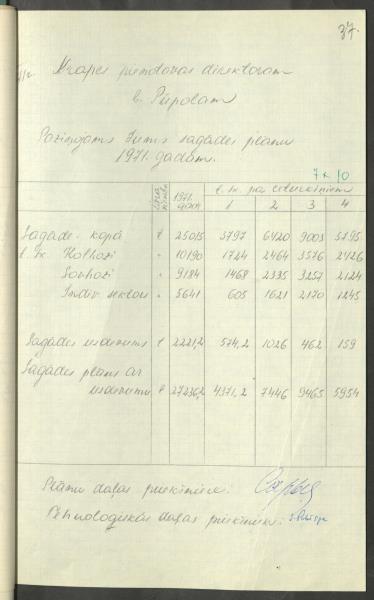 37.
Krapes pienotavas direktoram
b. Pūpolam
Paziņojam Jums sagādes plānu
1971. gadam.
7 x 10
1971. gadam t. sk. pa ceturkšņiem
1 2 3 4
Sagāde kopā t 25015 3797 6420 9003 5795
t. sk. Kolhozi " 10190 1724 2464 3576 2426
Sovhozi " 9184 1468 2335 3257 2124
Indiv. sektors " 5641 605 1621 2170 1245
Sagādes uzdevums t 2221,2 574,2 1026 462 159
Sagādes plāns ar
uzdevumu t 27236,2 4371,2 7446 9465 5954
Plānu daļas priekšniece:
Tehnoloģiskās daļas priekšniece: